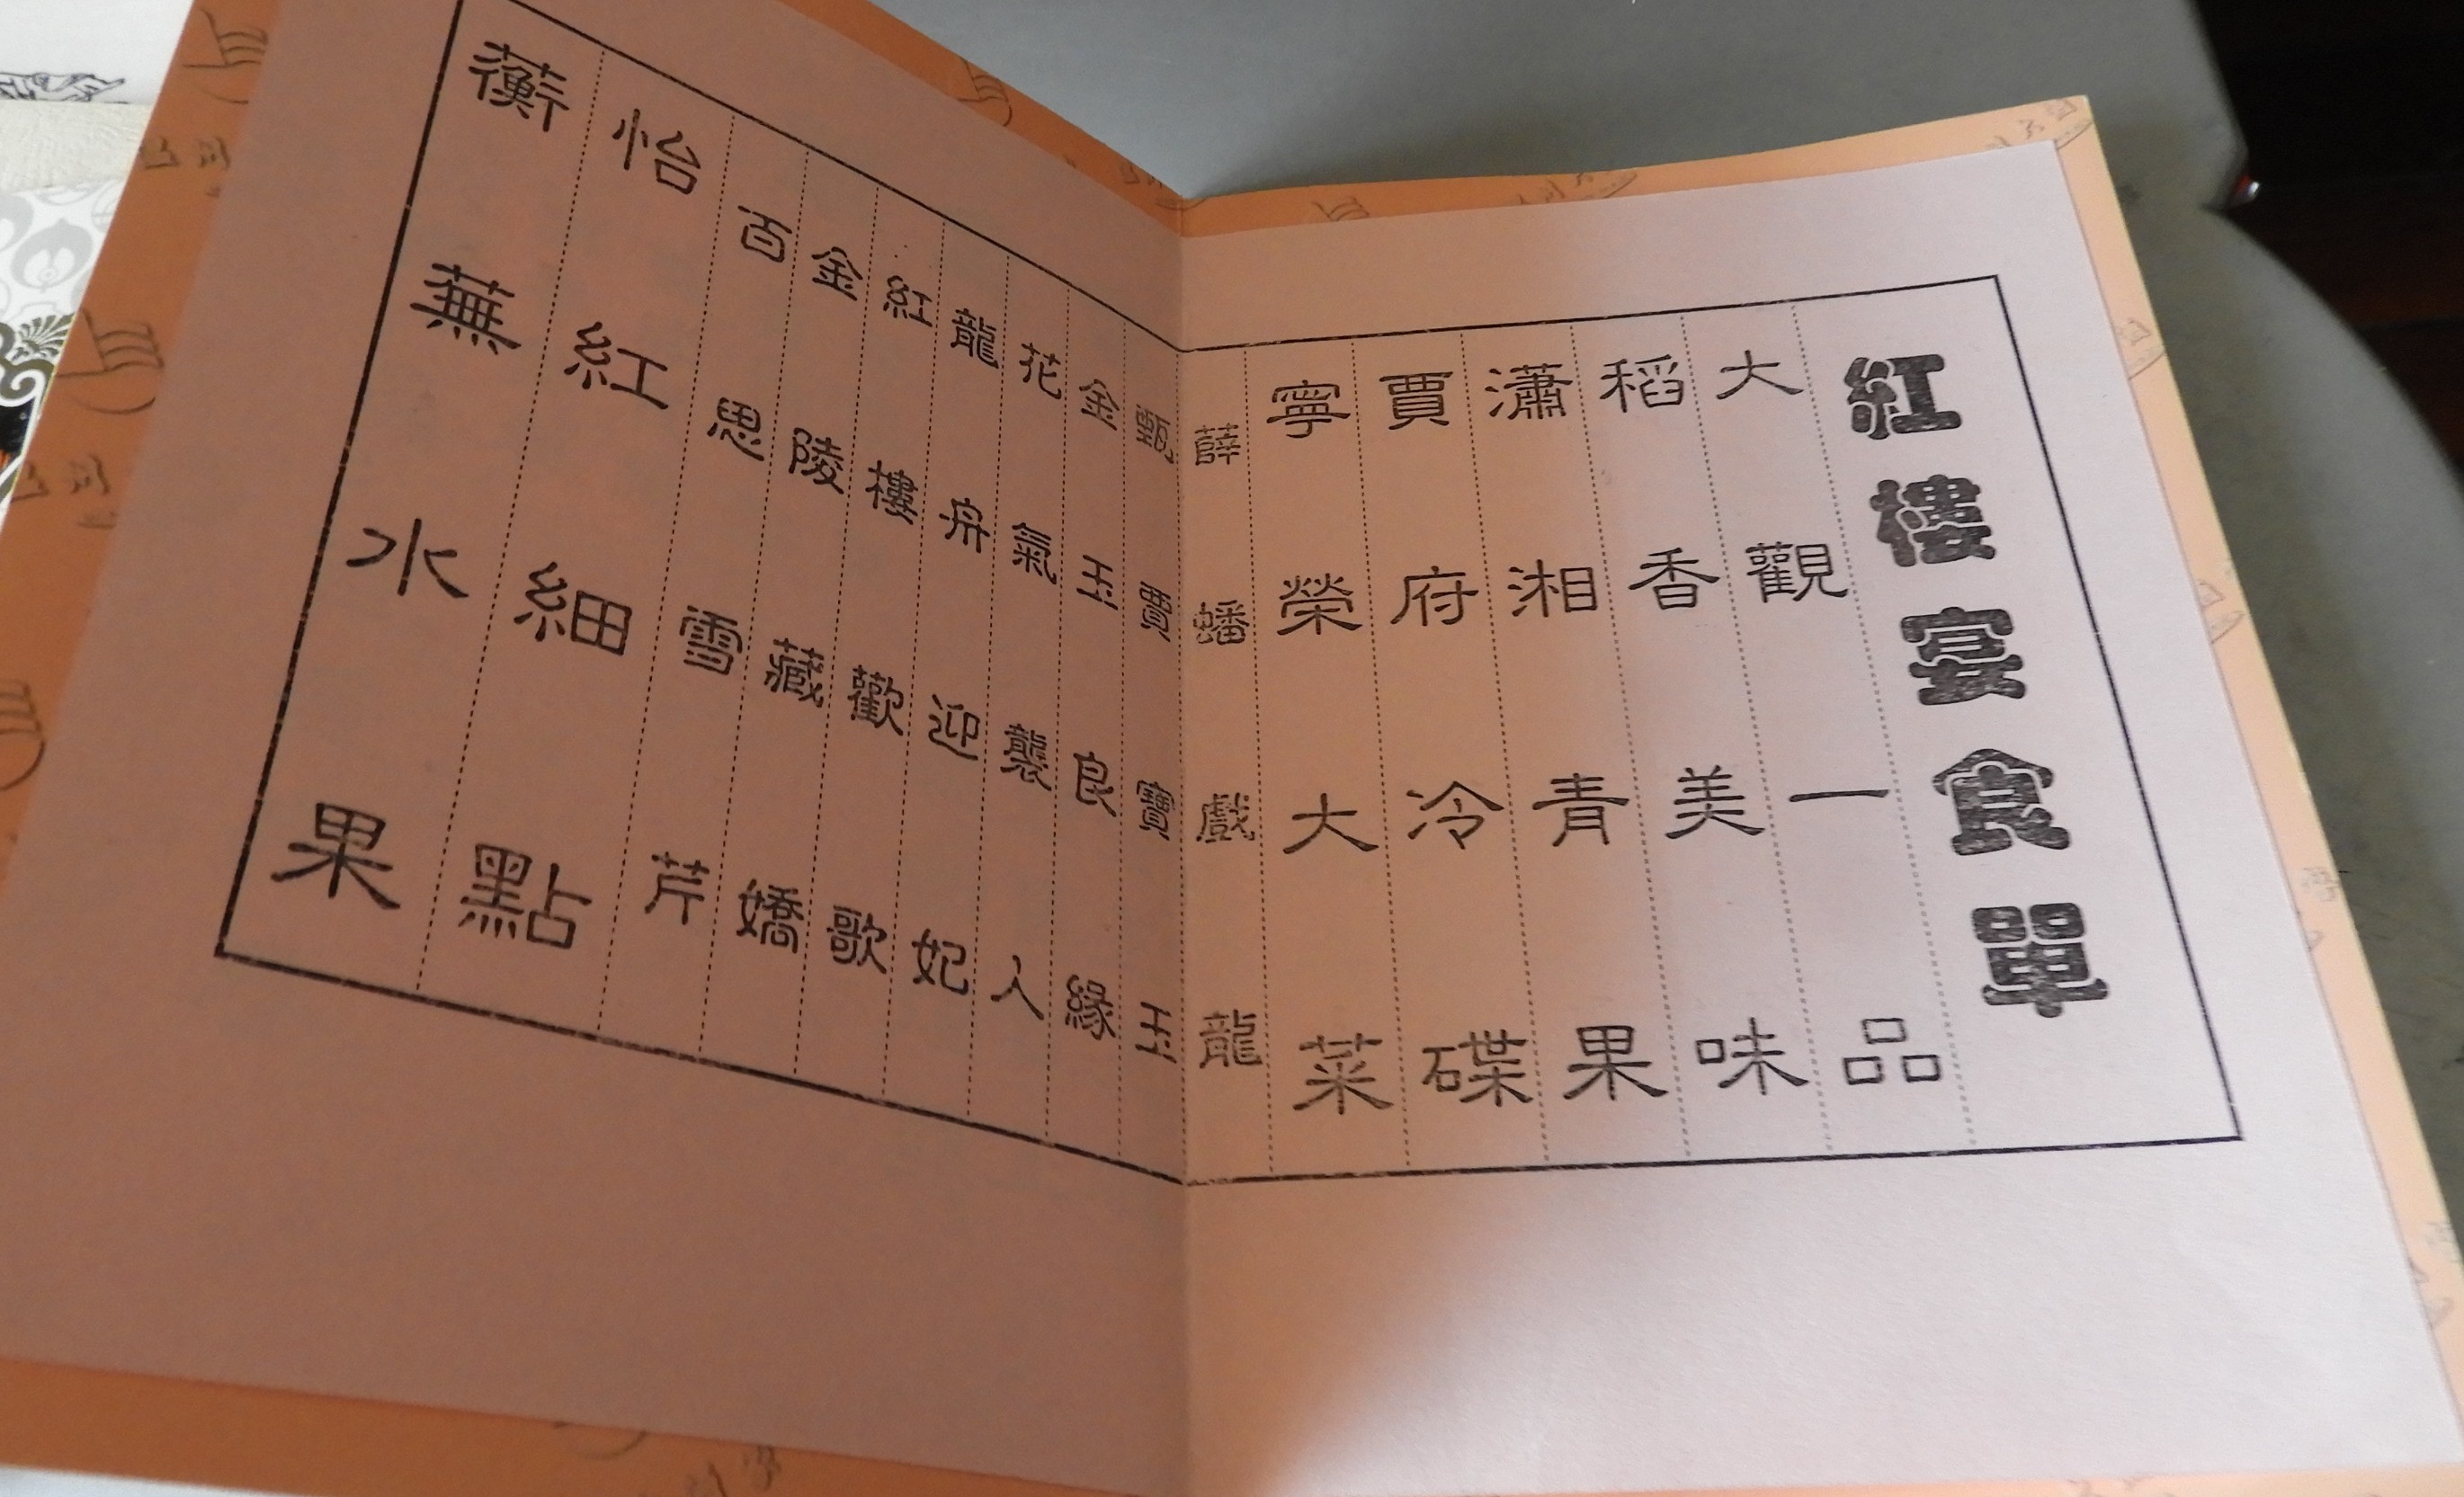 紅樓宴食單
大觀一品
稻香美味
瀟湘青果
賈府冷碟
寧榮大菜
薛蟠戲龍
甄賈寶玉
金玉良緣
花氣襲人
龍舟迎妃
紅樓歡歌
金陵藏嬌
百思雪芹
怡紅細點
蘅蕪水果